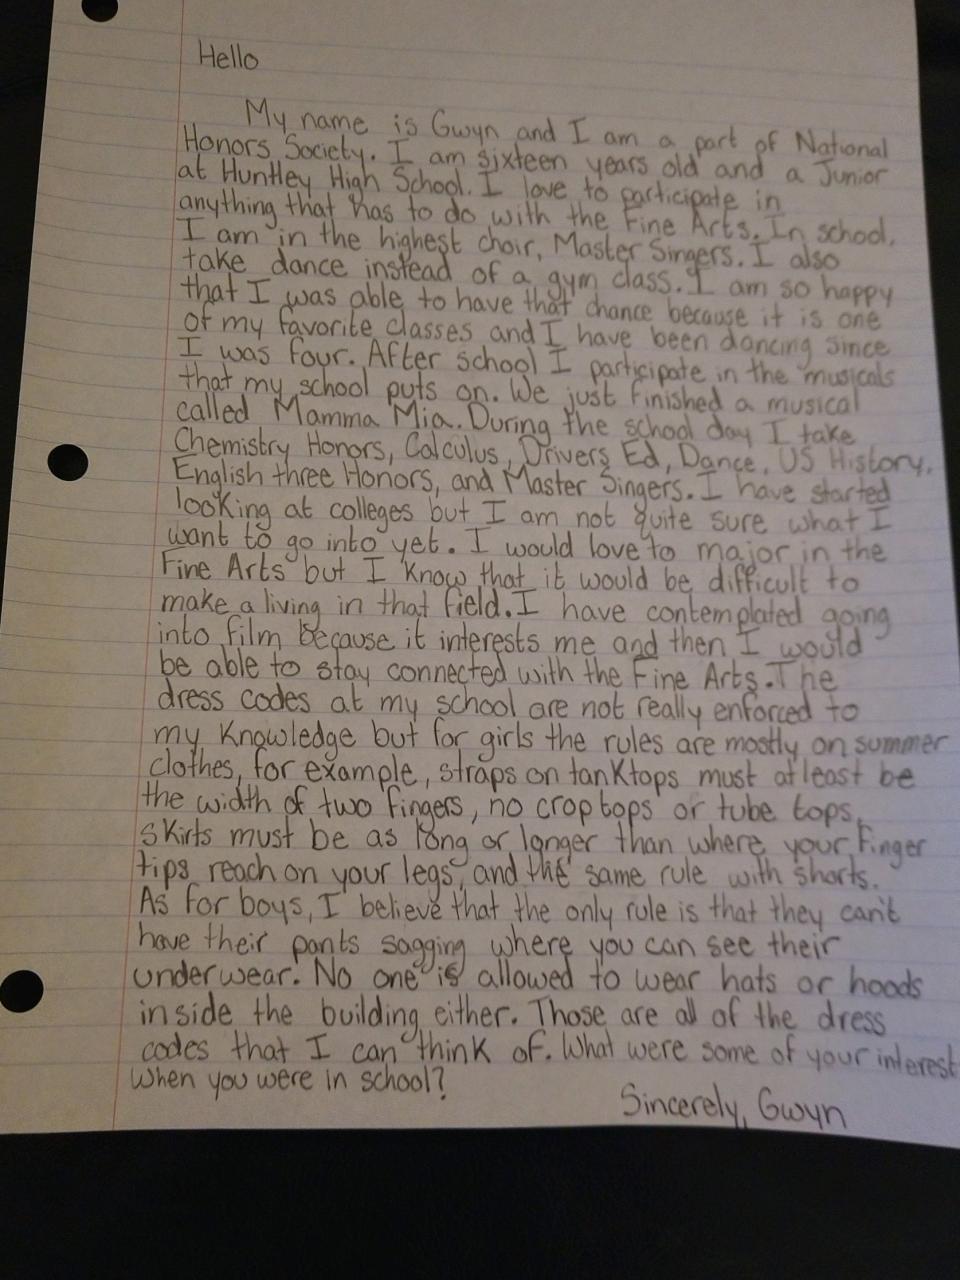 Hello
My name is Gwyn and I am a part of National
Honors Society. I am sixteen years old and a Junior
at Huntley High School. I love to participate in
anything that has to do with the Fine Arts. In school,
I am in the highest choir, Master Singers. I also
take dance instead of a gym class. I am so happy
that I was able to have that chance because it is one
of my favorite classes and I have been dancing since
I was four. After school I participate in the musicals
that my school puts on. We just finished a musical
called Mamma Mia. During the school day I take
Chemistry Honors, Calculus, Drivers Ed, Dance, US History,
English three Honors, and Master Singers. I have started
looking at colleges but I am not quite sure what I
want to go into yet. I would love to major in the
Fine Arts but I know that it would be difficult to
make a living in that field. I have contemplated going
into film because it interests me and then I would
be able to stay connected with the Fine Arts. The
dress codes at my school are not really enforced to
my knowledge but for girls the rules are mostly on summer
clothes, for example, straps on tanktops must at least be
the width of two fingers, no crop tops or tube tops,
skirts must be as long or longer than where your finger
tips reach on your legs, and the same rule with shorts.
As for boys, I believe that the only rule is that they can't
have their pants sagging where you can see their
underwear. No one is allowed to wear hats or hoods
inside the building either. Those are all of the dress
codes that I can think of. What were some of your interest
when you were in school?
Sincerely, Gwyn